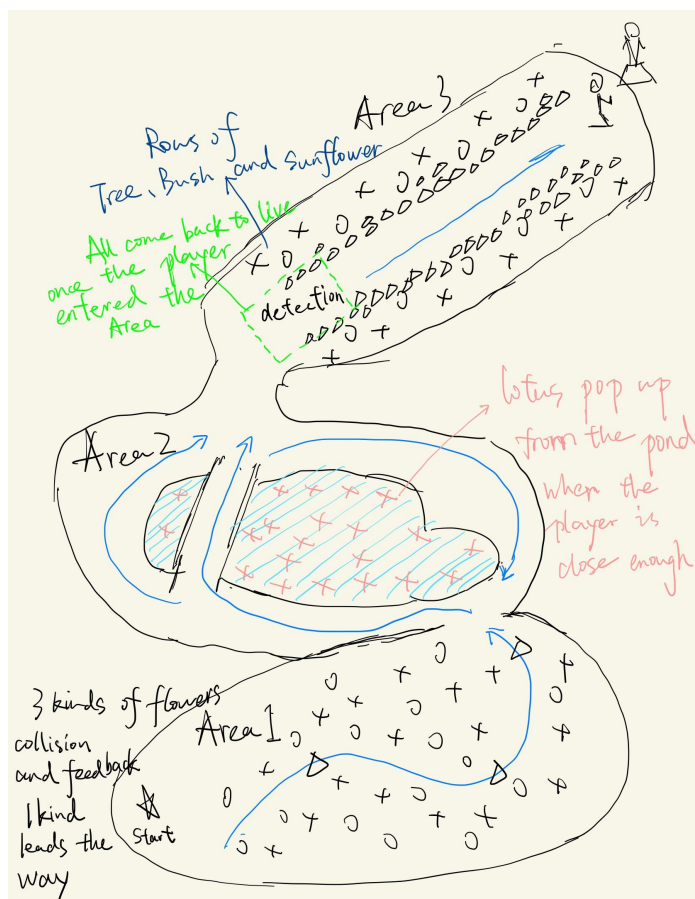 Area 3
Rows of
Tree, Bush and sunflower
All come back to live
once the player
entered the
Area
detection
Area 2
lotus pop up
from the pond
when the
player is
close enough
3 kinds of flowers
collision
and feedback
1 kind
leads the
way
Area 1
Start